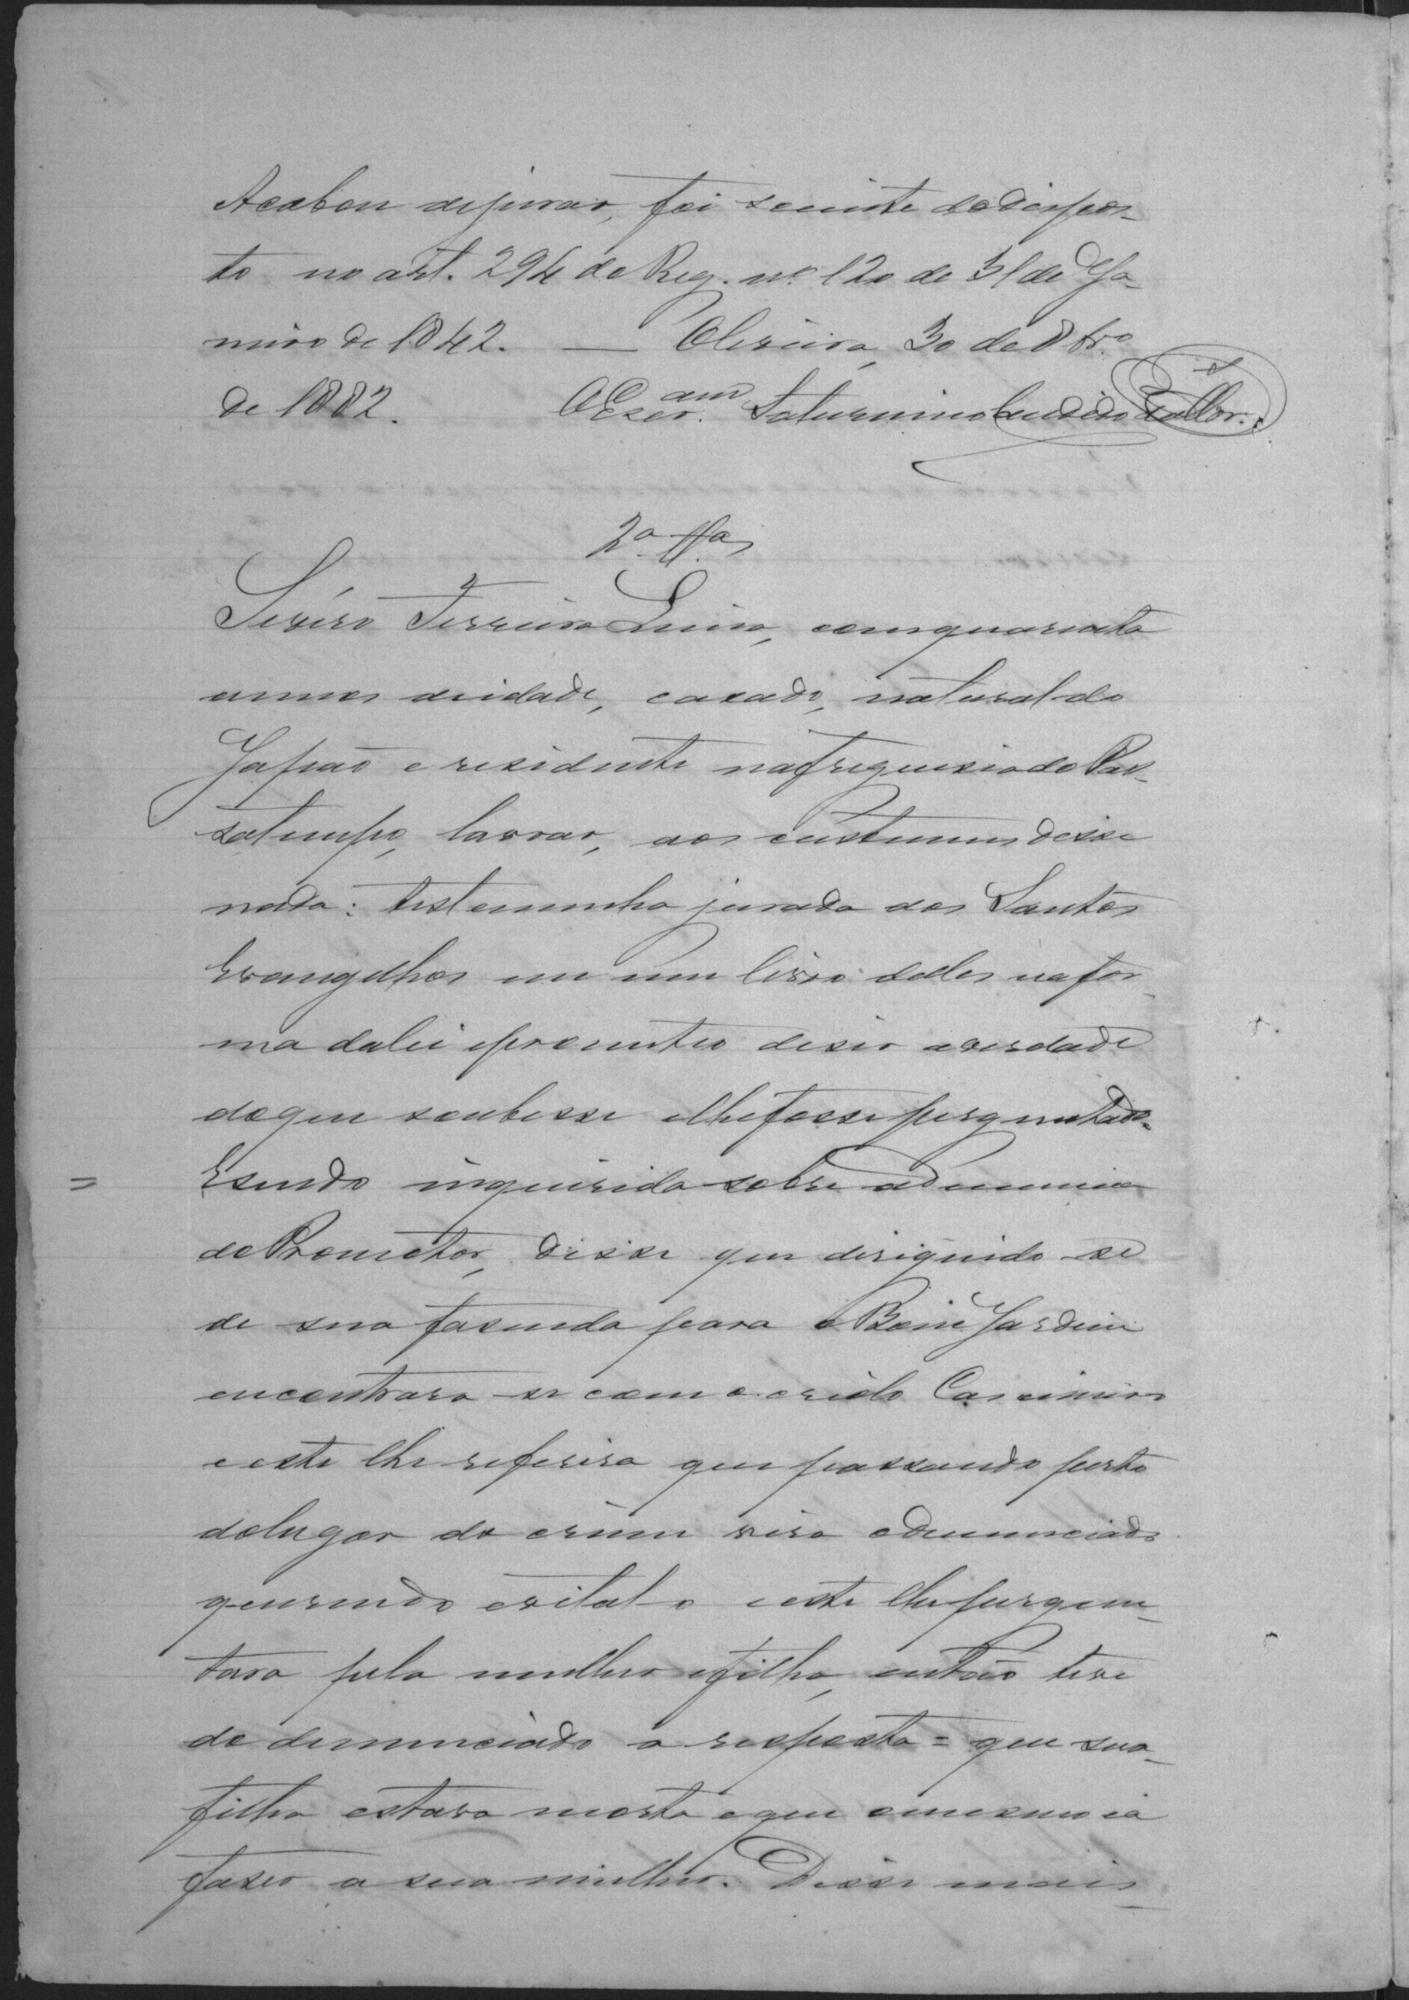 Acabou de jurar, foi sciente do dispos-
to no art. 294 do Reg. nº 120 de 31 de Ja-
neiro de 1842. — Oliveira, 30 de 8brº
de 1882. O Escr.am Saturnino Candido
2ª Tª
Severo Ferreira Leite, com quarenta
annos de idade, casado, natural do
Japão e residente na freguesia do Pas-
satempo, lavrar, aos custumes disse
nada: testemunha jurada aos Santos
Evangelhos em um livro delles na for-
ma da lei e prometteo diser a verdade
do que soubesse e lhe fosse perguntado.
E sendo inquirida sobre a denuncia
do Promotor, disse que dirigindo-se
de sua fasenda para o Bom Jardim
encontrara-se com o crioulo Casimiro
e este lhe referira que passando perto
do lugar do crime vira o denunciado
querendo evital-o e este lhe pergun-
tara pela mulher e filha, então teve
do denunciado a resposta = que sua
filha estava morta e que o mesmo ia
faser a sua mulher. Disse mais